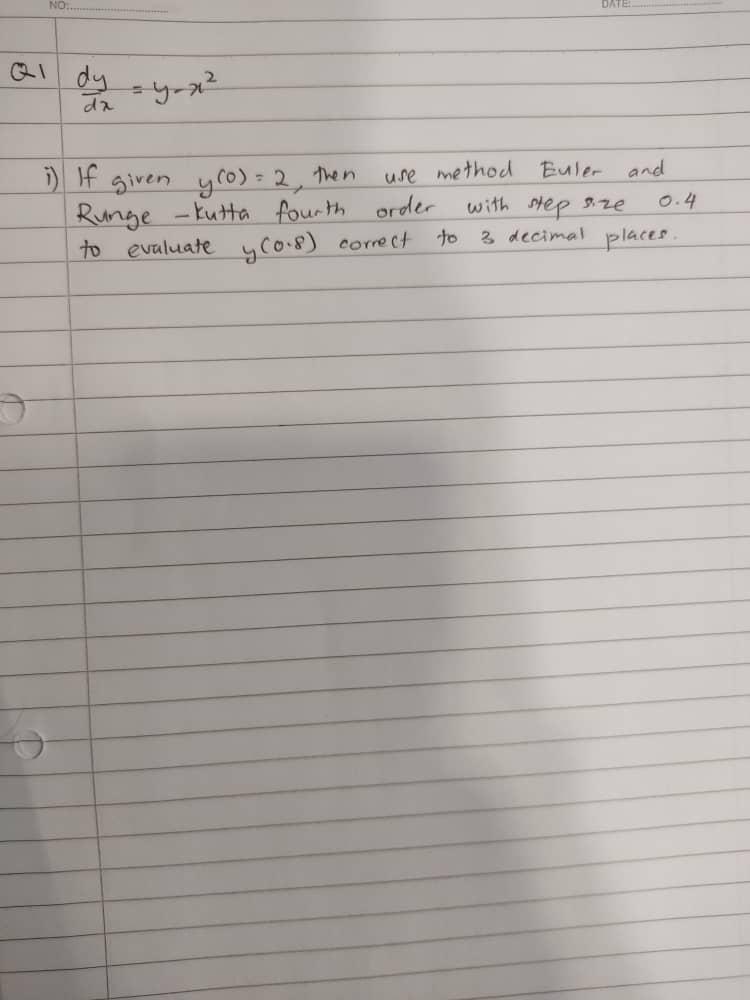 NO:
DATE:
Q1 dy/dx = y-x²
i) If given y(0) = 2, then use method Euler and
Runge -Kutta fourth order with step size 0.4
to evaluate y(0.8) correct to 3 decimal places.